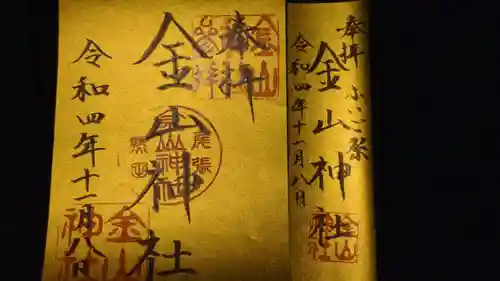 奉拝
金山神社
令和四年十一月八日
奉拝 ふいご祭
金山神社
令和四年十一月八日
尾張
金山